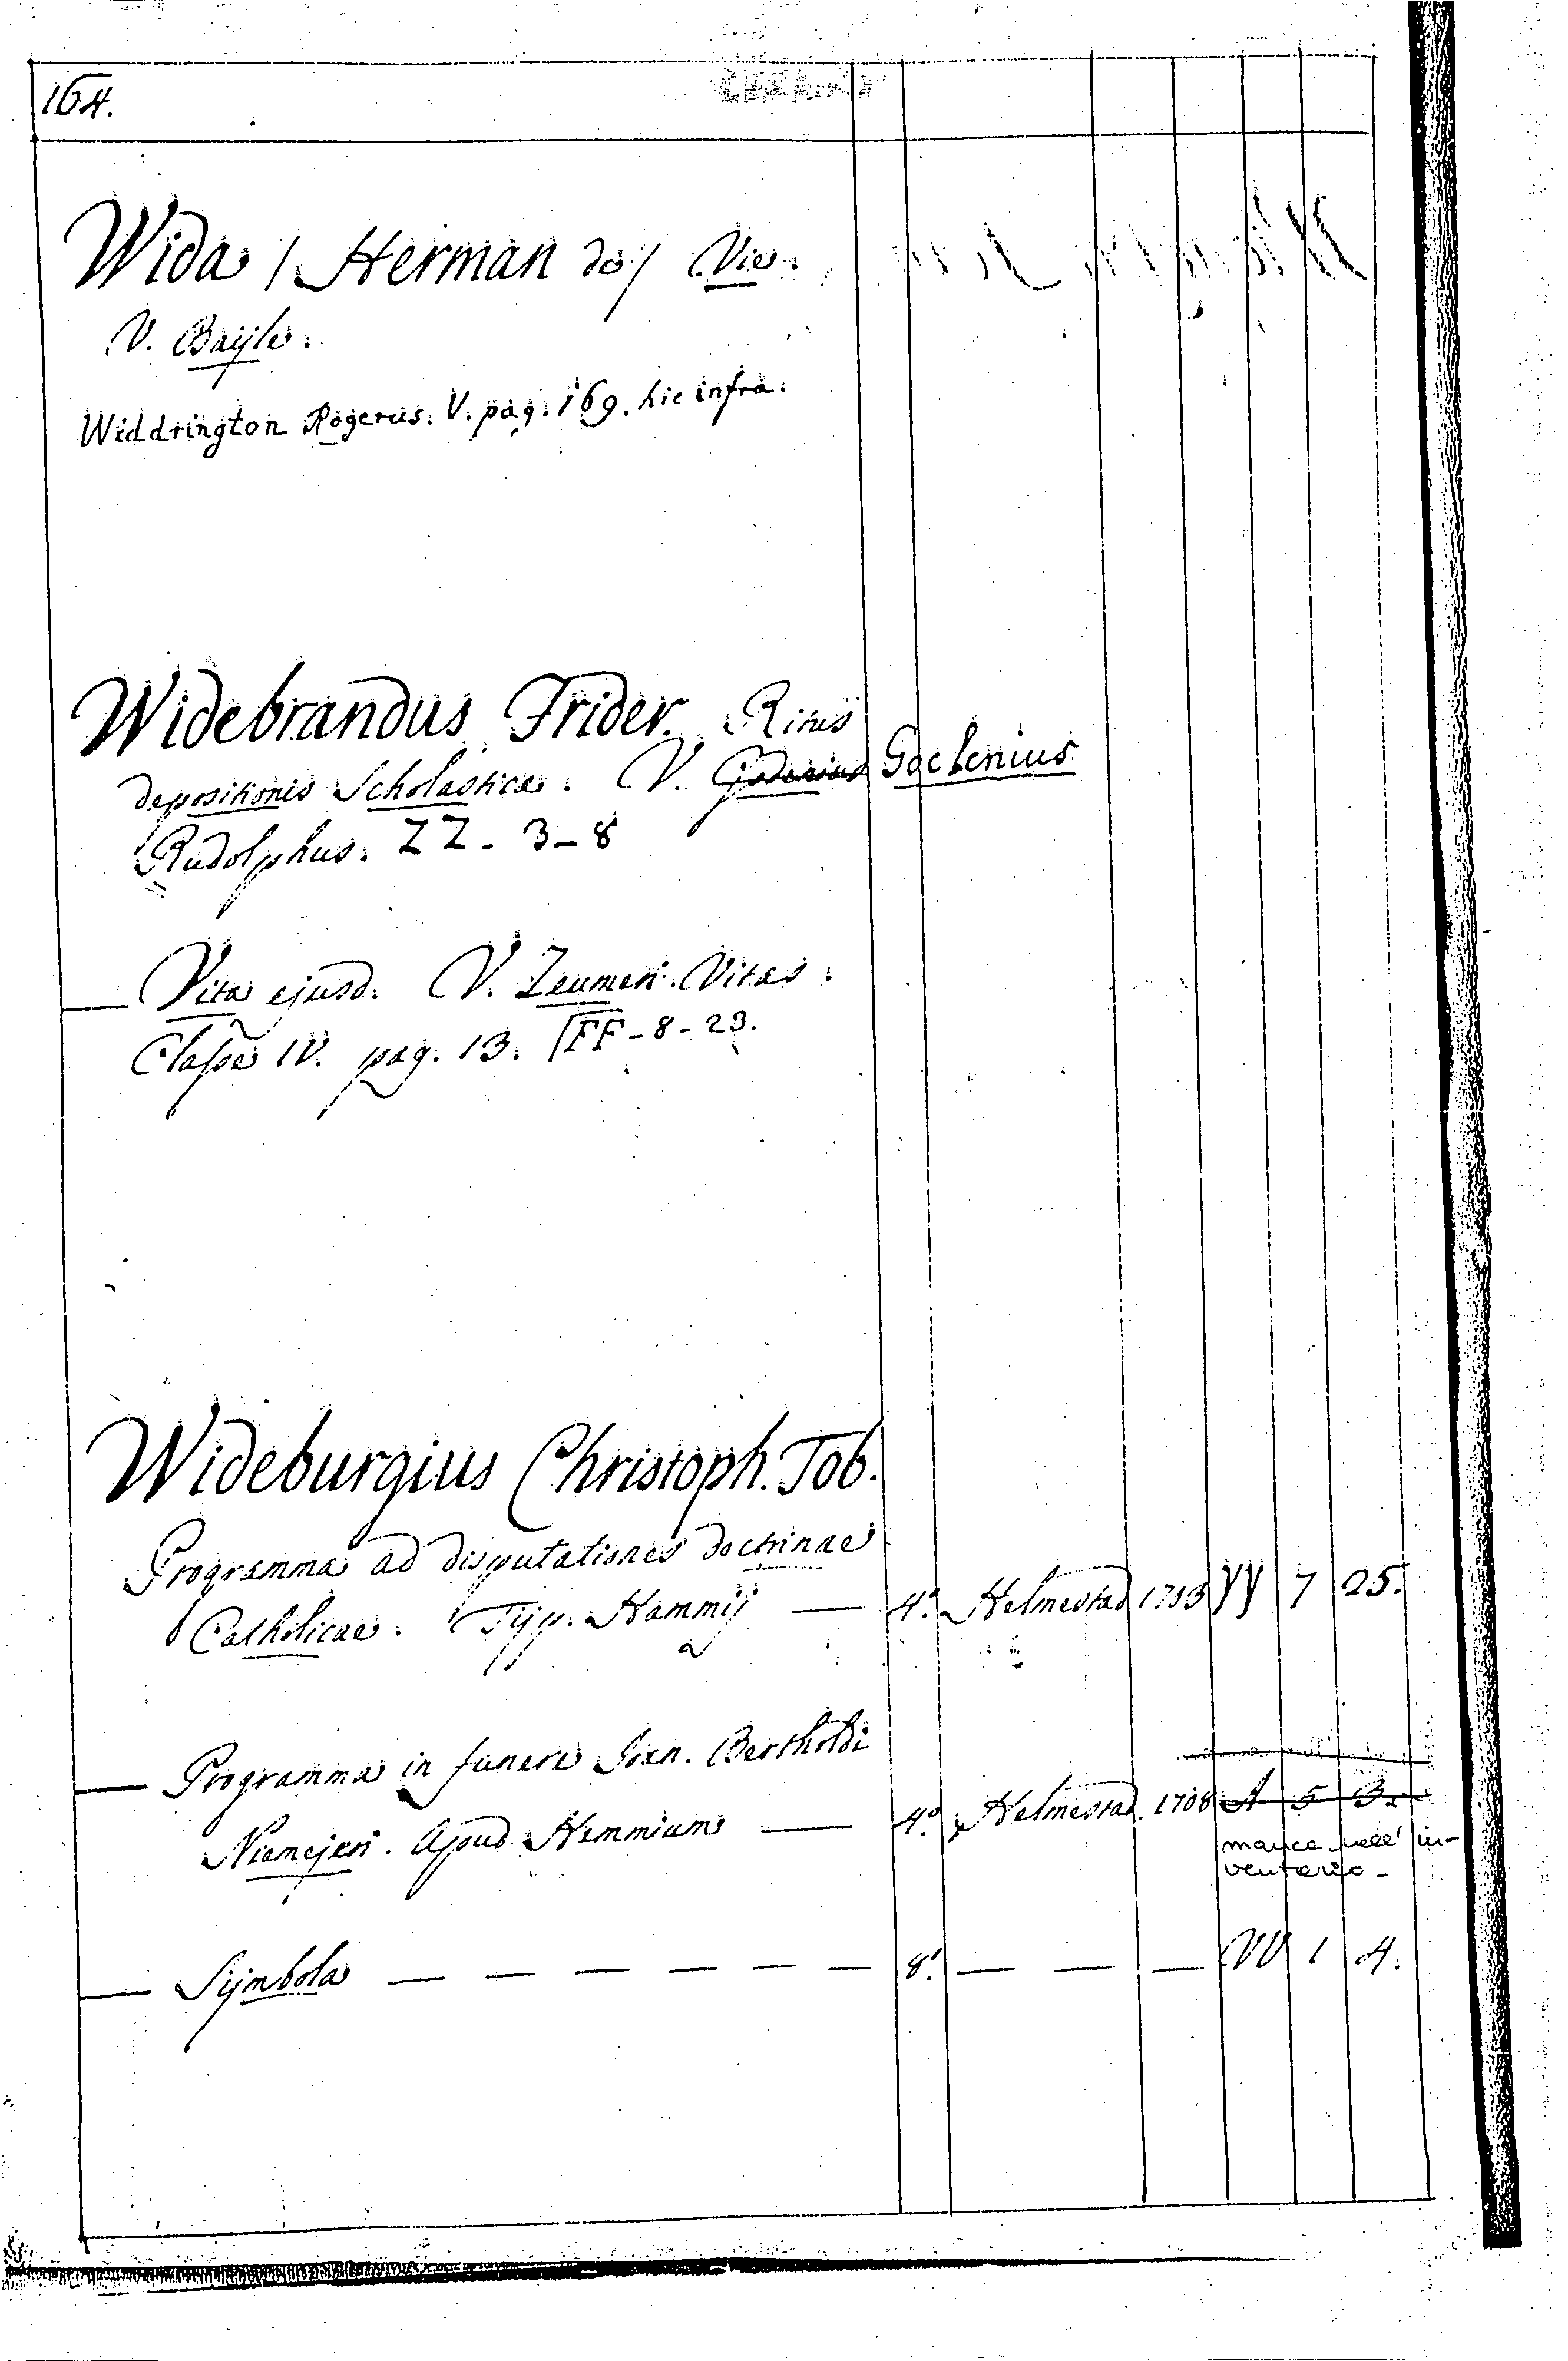 164.
Wida / Herman de / Vie.
V. Bayle.
Widdrington Rogerus. V. pag. 169. hic infra.
Widebrandus Frider. Ritus
depositionis Scholasticae. V. Goclenius
Rudolphus. ZZ - 3 - 8
— Vita ejusd. V. Zeumeri Vitas.
Classe IV. pag. 13. FF - 8 - 23.
Wideburgius Christoph. Tob.
Programma ad disputationes doctrinae
Catholicae. Typ. Hammij — 4.° Helmestad YY 7 25.
— Programma in funere Joan. Bertholdi
Niemejeri. Apud Hammium — 4.° Helmestad. 1708 A 5 3.
manca nell' in-
ventario -
— Symbola — — — — — — 8.° — — — VV 1 4.